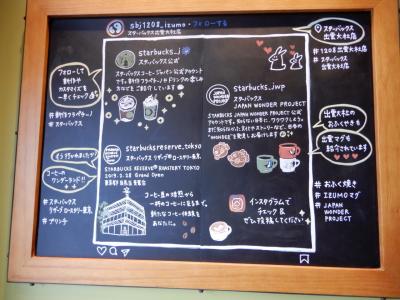 sbj1208_izumo・フォローする
スターバックス出雲大社店
starbucks_j
スターバックス公式
スターバックスコーヒー ジャパン公式アカウント
です。新作フラペチーノやドリンクの楽しみ
方などをご紹介しています
フォローして
新作や
カスタマイズを
一早くチェック
#新作フラペチーノ
#スターバックス
starbucksreserve.tokyo
スターバックス リザーブ ロースタリー東京
STARBUCKS RESERVE ROASTERY TOKYO
2019.2.28 Grand Open
東京都目黒区青葉台
コーヒーの
ワンダーランド!!
#スターバックス
リザーブ ロースタリー東京
#プリンチ
コーヒー豆の焙煎から
一杯のコーヒーに至るまで。
新たなコーヒー体験を
あなたに。
starbucks_jwp
スターバックス
JAPAN WONDER PROJECT
STARBUCKS JAPAN WONDER PROJECT 公式
アカウントです。
インスタグラムで
チェック &
ぜひ投稿してください
スターバックス
出雲大社店
#1208出雲大社店
#スターバックス
出雲大社店
出雲大社の
おふくやきを
出雲マグも
#おふく焼き
#IZUMOマグ
#JAPAN
WONDER
PROJECT